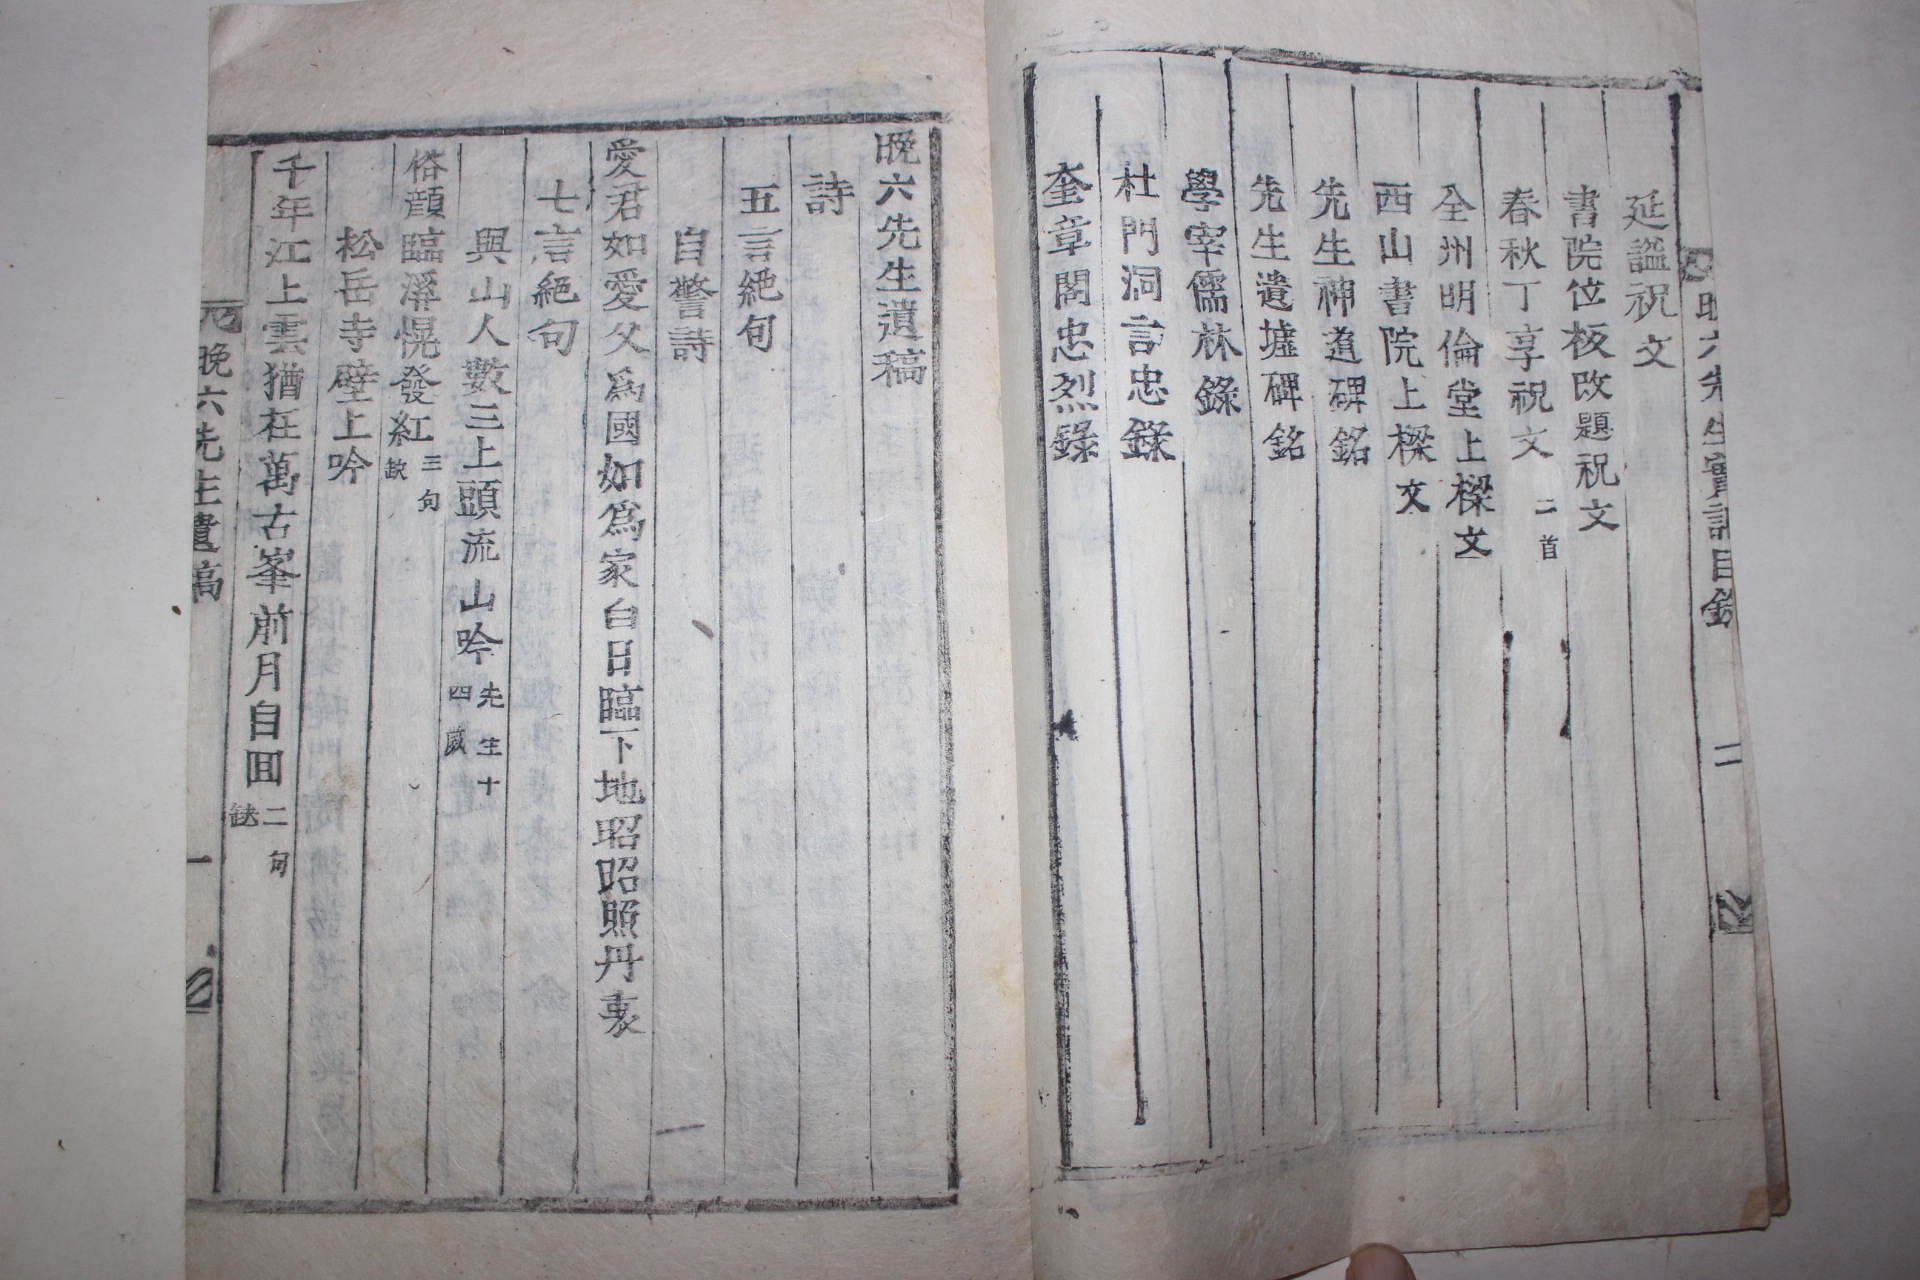 晩六先生實記目錄 二
延謚祝文
書院位板改題祝文
春秋丁享祝文 二首
全州明倫堂上樑文
西山書院上樑文
先生神道碑銘
先生遺墟碑銘
學宰儒林錄
杜門洞言忠錄
奎章閣忠烈錄
晩六先生遺稿
詩
五言絕句
自警詩
愛君如愛父爲國如爲家白日臨下地昭昭照丹衷
七言絕句
與山人數三上頭流山吟 先生十四歲
俗顔臨溪愰發紅 三句缺
松岳寺壁上吟
千年江上雲猶在萬古峯前月自回 二句缺
晩六先生遺稿 一